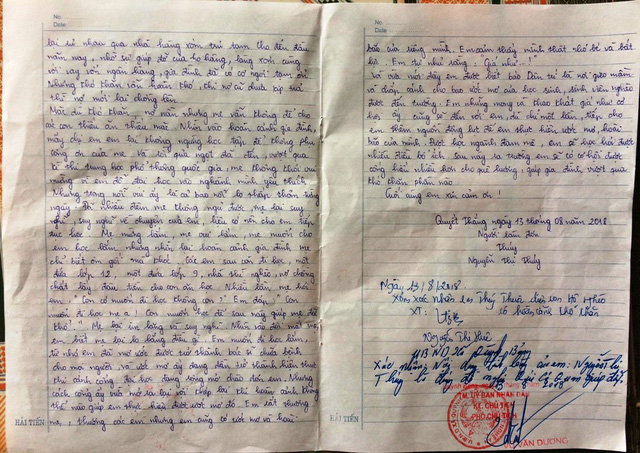 No
Date
lại sử nhau qua nhà hàng xóm trú tạm cho đến đầu
năm nay, nhờ sự giúp đỡ của họ hàng, làng xóm cùng
với vay vốn ngân hàng, gia đình đã có cơ ngơi tạm ổn
Nhưng khó khăn vẫn hoàn khó, thứ nợ cũ chưa kịp trả
thì nợ mới lại chồng lên.
Mặc dù khó khăn, nợ nần nhưng mẹ vẫn không để cho
các con thiếu ăn thiếu mặc. Nhìn vào hoàn cảnh gia đình,
mấy chị em em lại không ngừng học tập để không phụ
công ơn của mẹ. Và rồi quả ngọt đã đến, vượt qua
kì thi trung học phổ thông quốc gia, mẹ không thể vui
mừng vì em đỗ đại học vào nghành mình yêu thích.
Nhưng trong nỗi vui ấy là cả bao nỗi lo thấp thỏm từng
ngày. Đã nhiều đêm mẹ không ngủ được, mẹ lại suy
nghĩ, suy nghĩ về chuyện của em, liệu có nên cho em tiếp
tục học. Mẹ mừng lắm, mẹ vui lắm, mẹ muốn cho
em học lắm nhưng nhìn lại hoàn cảnh gia đình mẹ
chỉ biết ôm gối mà khóc. Các em sau còn đi học, một
đứa lớp 12, một đứa lớp 9, nhà thì nghèo, nợ chồng
chất lấy đâu tiền cho con ăn học. Nhiều lần, mẹ hỏi
em: "Con có muốn đi học không con?" Em đáp: "Con
muốn đi học mẹ ạ! Con muốn học để sau này giúp mẹ đỡ
khổ." Mẹ lại im lặng và suy nghĩ. Nhìn vào đôi mắt mẹ,
em biết mẹ lại lo lắng điều gì. Em muốn đi học lắm,
từ nhỏ em đã mơ ước được trở thành bác sĩ chữa bệnh
cho mọi người và ước mơ ấy đang dần trở thành hiện thực
khi cánh cổng đại học đang rộng mở chào đón em. Nhưng
cách cổng ấy vừa mở ra lại vội khép lại khi hoàn cảnh không
thể nào giúp em thực hiện được ước mơ đó. Em rất thương
mẹ, thương các em nhưng em cũng có ước mơ và hoài
HẢI TIẾN
No
Date
bão của riêng mình. Em cảm thấy mình thật nhỏ bé và bất
lực. Em tự nhủ rằng: "Giá như...!"
Và vừa mới đây em được biết báo Dân trí là nơi gieo mầm
và chắp cánh cho bao ước mơ của học sinh, sinh viên nghèo
được đến trường. Em những mong và khao khát giá như cơ
hội ấy cũng sẽ đến với em, dù chỉ một lần, tiếp cho
em thêm nguồn động lực để em thực hiện ước mơ, hoài
bão của mình. Được học ngành đam mê, em sẽ học hỏi được
nhiều điều bổ ích sau này ra trường em sẽ có cơ hội được
cống hiến nhiều hơn cho quê hương, giúp gia đình vượt qua
khó khăn phần nào
Cuối cùng em xin cảm ơn!
Quyết Thắng ngày 13 tháng 08 năm 2018
Người làm đơn
Thuỷ
Nguyễn Thị Thuỷ
Ngày 13/8/2018.
Xóm Xác Nhận
XT:
có hoàn cảnh khó khăn
Nguyễn Thị Huê
UBND Xã
Xác nhận
TM. ỦY BAN NHÂN DÂN
KT. CHỦ TỊCH
PHÓ CHỦ TỊCH
VĂN DƯƠNG
HẢI TIẾN